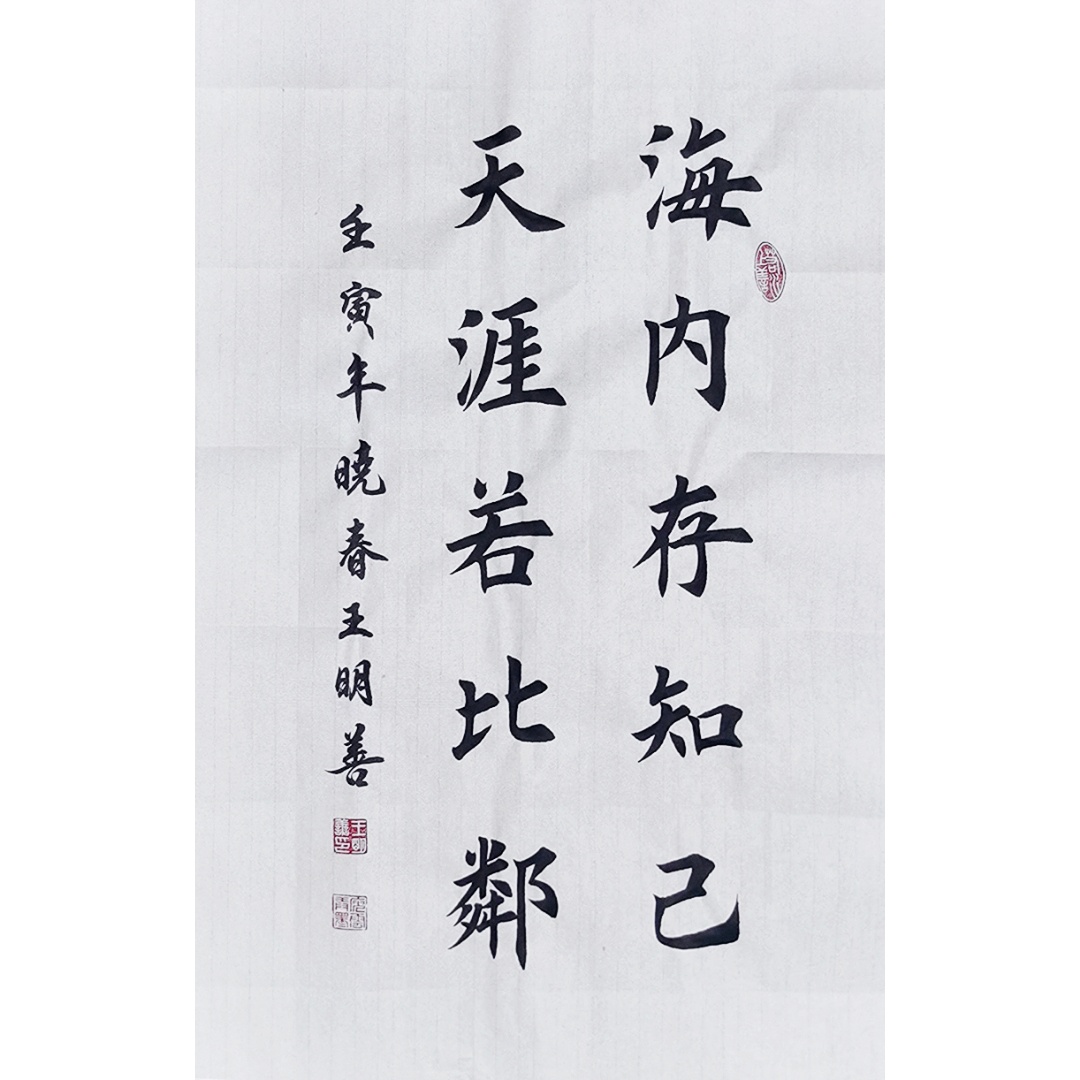 海内存知己
天涯若比鄰
壬寅年曉春王明善
王明善印